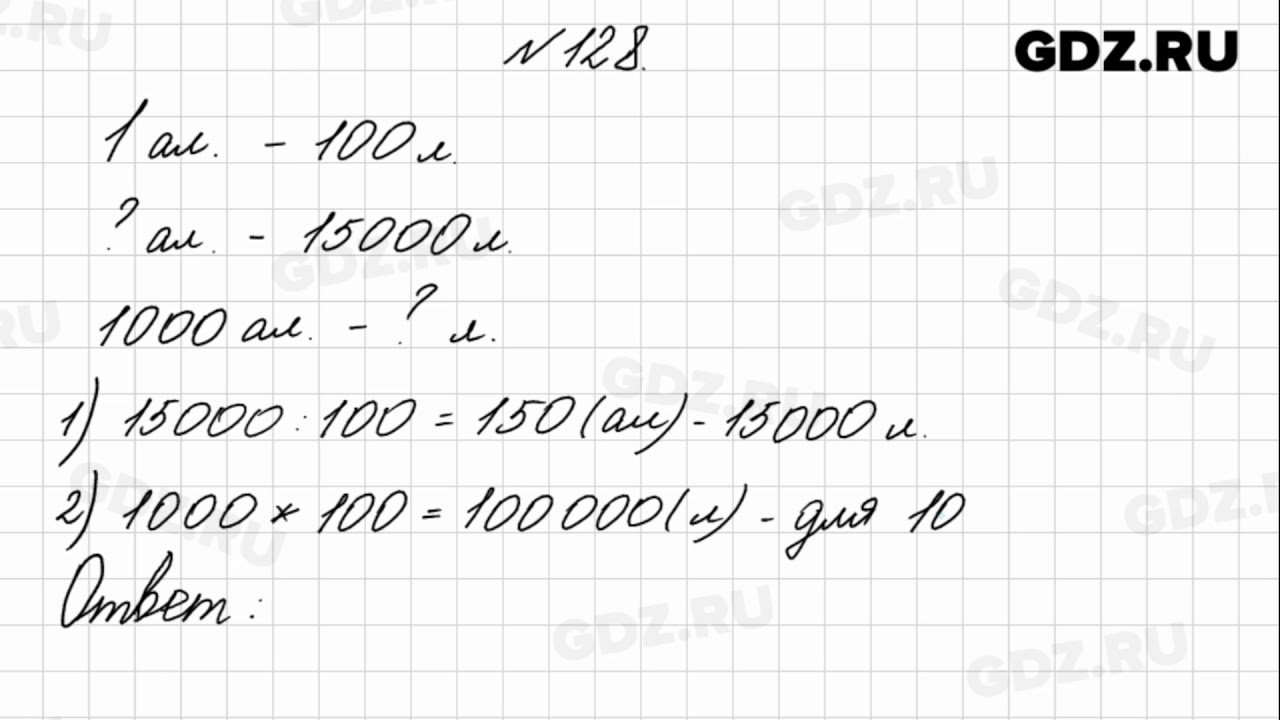 №128. GDZ.RU
1 ал. - 100 л.
? ал. - 15000 л.
1000 ал. - ? л.
1) 15000 : 100 = 150 (ал) - 15000 л.
2) 1000 * 100 = 100 000 (л) - для 10
Ответ :